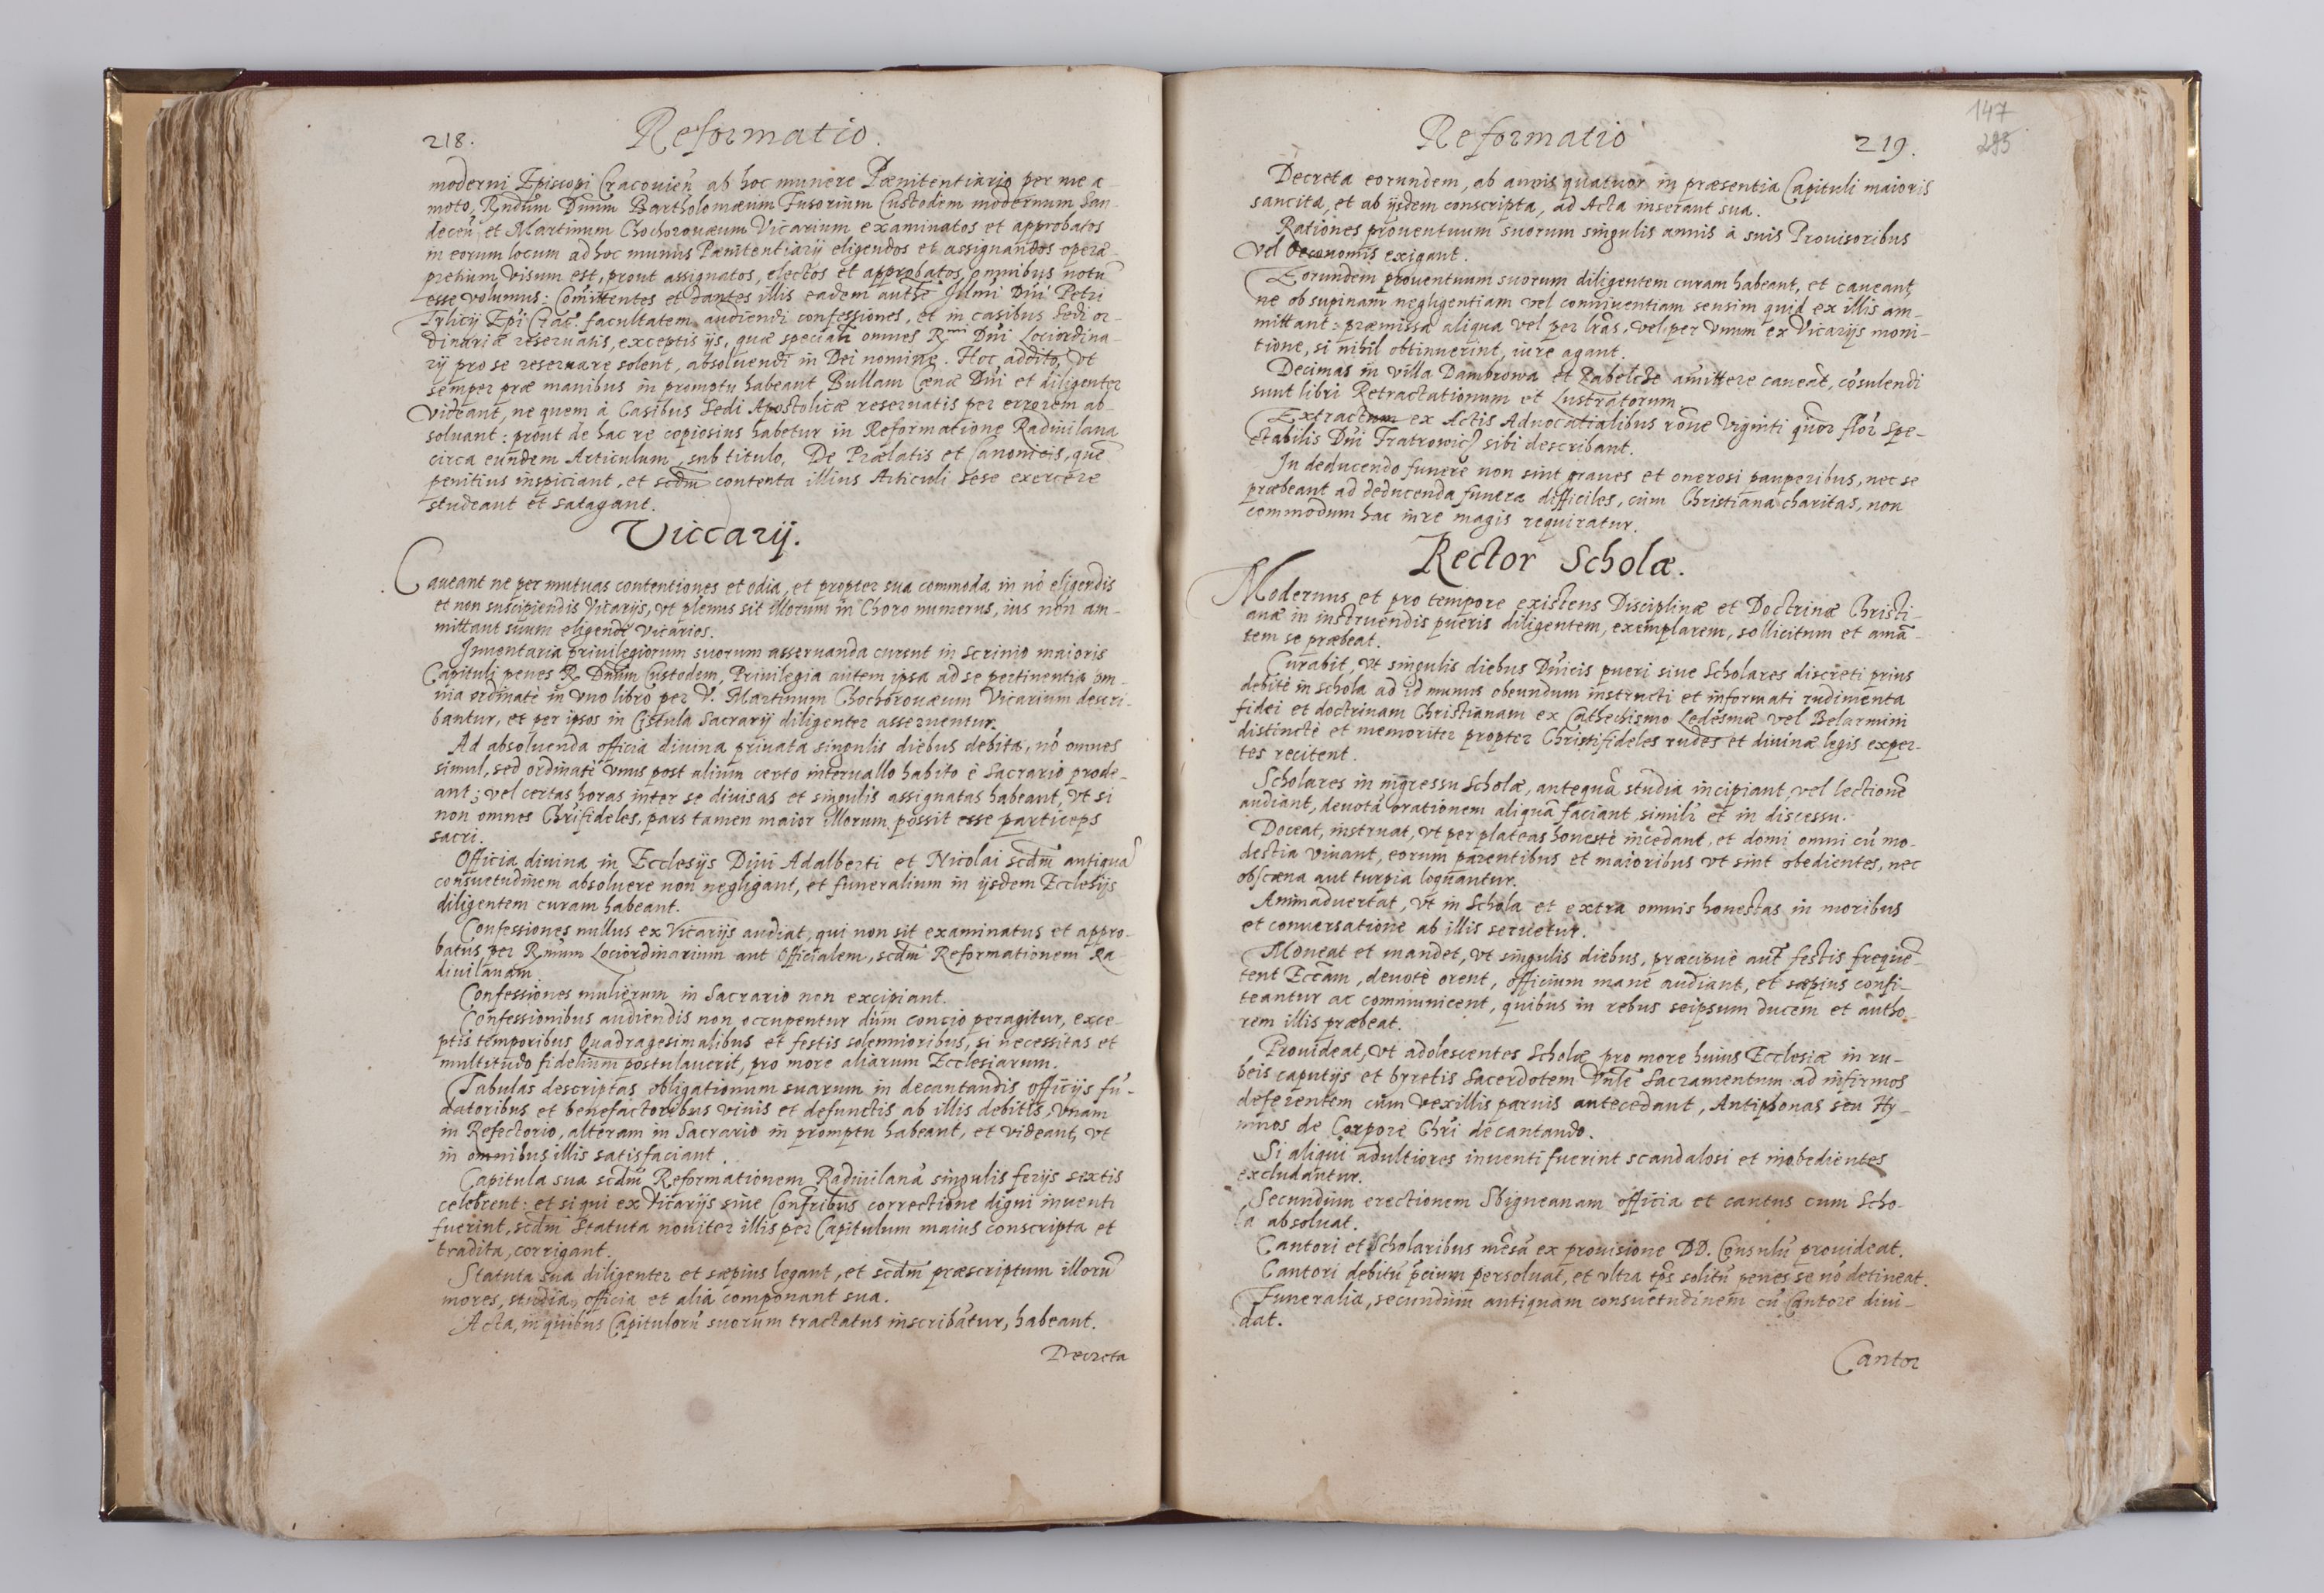 218. Reformatio.
moderni Episcopi Cracouień ab hoc munere Pœnitentiario per me a-
moto, Rndum Dnum Bartholomæum Fusorium Custodem modernum San-
deceń et Martinum Chochorouæum Vicarium examinatos et approbatos
in eorum locum ad hoc munus Pœnitentiarij eligendos et assignandos operæ
pretium visum est, prout assignatos, electos et approbatos omnibus notū
esse volumus: Comittentes et dantes illis eadem autħe Illmi Dni Petri
Tylicij Epi Crac. facultatem audiendi confessiones, et in casibus Sedi or-
dinariæ reseruatis, exceptis ijs, quæ speciali omnes R.mi Dni Lociordina-
rij pro se reseruare solent, absoluendi in Dei nomine. Hoc addito, vt
semper præ manibus in promptu habeant Bullam Cœnæ Dni et diligenter
videant, ne quem à Casibus Sedi Apostolicæ reseruatis per errorem ab-
soluant: prout de hac re copiosius habetur in Reformatione Radiuilana
circa eundem Articulum, sub titulo, De Prælatis et Canonicis, quē
penitius inspiciant, et scdm contenta illius Articuli sese exercere
studeant et satagant.
Viccarij.
Caueant ne per mutuas contentiones et odia, et propter sua commoda in nō eligendis
et non suscipiendis Vicarijs, vt plenus sit illorum in Choro numerus, ius non am-
mittant suum eligendi vicarios.
Inuentaria priuilegiorum suorum asseruanda curent in scrinio maioris
Capituli penes R. Dnum Custodem, Priuilegia autem ipsa ad se pertinentia om-
nia ordinatè in vno libro per V. Martinum Chochorouæum Vicarium descri-
bantur, et per ipsos in Cistula Sacrarij diligenter asseruentur.
Ad absoluenda officia diuina priuata singulis diebus debita, nō omnes
simul, sed ordinatè vnus post alium certo interuallo habito è Sacrario prode-
ant; vel certas horas inter se diuisas et singulis assignatas habeant, vt si
non omnes Chrifideles, pars tamen maior illorum possit esse particeps
sacri.
Officia diuina in Ecclesijs Diui Adalberti et Nicolai scdm antiquā
consuetudinem absoluere non negligant, et funeralium in ijsdem Ecclesijs
diligentem curam habeant.
Confessiones nullus ex Vicarijs audiat, qui non sit examinatus et appro-
batus per Rmum Lociordinarium aut Officialem, scdm Reformationem Ra-
diuilanam.
Confessiones mulierum in Sacrario non excipiant.
Confessionibus audiendis non occupentur dum concio peragitur, exce-
ptis temporibus Quadragesimalibus et festis solemnioribus, si necessitas et
multitudo fidelium postulauerit, pro more aliarum Ecclesiarum.
Tabulas descriptas obligationum suarum in decantandis officijs fū-
datoribus et benefactoribus viuis et defunctis ab illis debitis, vnam
in Refectorio, alteram in Sacrario in promptu habeant, et videant, vt
in omnibus illis satisfaciant.
Capitula sua scdm Reformationem Radiuilanā singulis ferijs sextis
celebrent: et si qui ex Vicarijs siue Confribus correctione digni inuenti
fuerint, scdm Statuta nouiter illis per Capitulum maius conscripta et
tradita, corrigant.
Statuta sua diligenter et sæpius legant, et scdm præscriptum illorū
mores, studia, officia et alia componant sua.
Acta, in quibus Capitulorū suorum tractatus inscribātur, habeant.
Decreta
Reformatio 219.
147
293
Decreta eorundem, ab annis quatuor in præsentia Capituli maioris
sancita, et ab ijsdem conscripta, ad Acta inserant sua.
Rationes prouentuum suorum singulis annis à suis Prouisoribus
vel Oeconomis exigant.
Eorundem prouentuum suorum diligentem curam habeant, et caueant,
ne ob supinam negligentiam vel conniuentiam sensim quid ex illis am-
mittant: præmissa aliqua vel per lras, vel per vnum ex Vicarijs moni-
tione, si nihil obtinuerint, iure agant.
Decimas in villa Dambrowa et Zabelcze amittere caueāt, cōsulendi
sunt libri Retractationum et Lustratorum.
Extractum ex Actis Aduocatialibus rone viginti quor flor Spe-
ctabilis Dni Tratrowicz sibi describant.
In deducendo funere non sint graues et onerosi pauperibus, nec se
præbeant ad deducenda funera difficiles, cùm Christiana charitas, non
commodum hac in re magis requiratur.
Rector Scholæ.
Modernus, et pro tempore existens Disciplinæ et Doctrinæ Christi-
anæ in instruendis pueris diligentem, exemplarem, sollicitum et amā-
tem se præbeat.
Curabit, vt singulis diebus Dnicis pueri siue Scholares discreti prius
debitè in schola ad id munus obeundum instructi et informati rudimenta
fidei et doctrinam Christianam ex Cathechismo Ledesmæ vel Belarmini
distinctè et memoriter propter Christifideles rudes et diuinæ legis exper-
tes recitent.
Scholares in ingressu Scholæ, antequā studia incipiant, vel lectionē
audiant, deuotā orationem aliquā faciant, simili et in discessu.
Doceat, instruat, vt per plateas honestè incedant, et domi omni cū mo-
destia viuant, eorum parentibus et maioribus vt sint obedientes, nec
obscæna aut turpia loquantur.
Animaduertat, vt in Schola et extra omnis honestas in moribus
et conuersatione ab illis seruetur.
Moneat et mandet, vt singulis diebus, præcipuè aut festis frequē-
tent Eccam, deuotè orent, officium mane audiant, et sæpius confi-
teantur ac communicent, quibus in rebus seipsum ducem et autho-
rem illis præbeat.
Prouideat, vt adolescentes Scholæ pro more huius Ecclesiæ in ru-
beis caputijs et byretis Sacerdotem Vnle Sacramentum ad infirmos
deferentem cum vexillis paruis antecedant, Antiphonas seu Hy-
mnos de Corpore Chri decantando.
Si aliqui adultiores inuenti fuerint scandalosi et inobedientes
excludantur.
Secundum erectionem Sbigneanam officia et cantus cum Scho-
la absoluat.
Cantori et Scholaribus mēsā ex prouisione DD. Consulū prouideat.
Cantori debitū pcium persoluat, et vltra tps solitū penes se nō detineat.
Funeralia, secundum antiquam consuetudinem cū Cantore diui-
dat.
Cantor